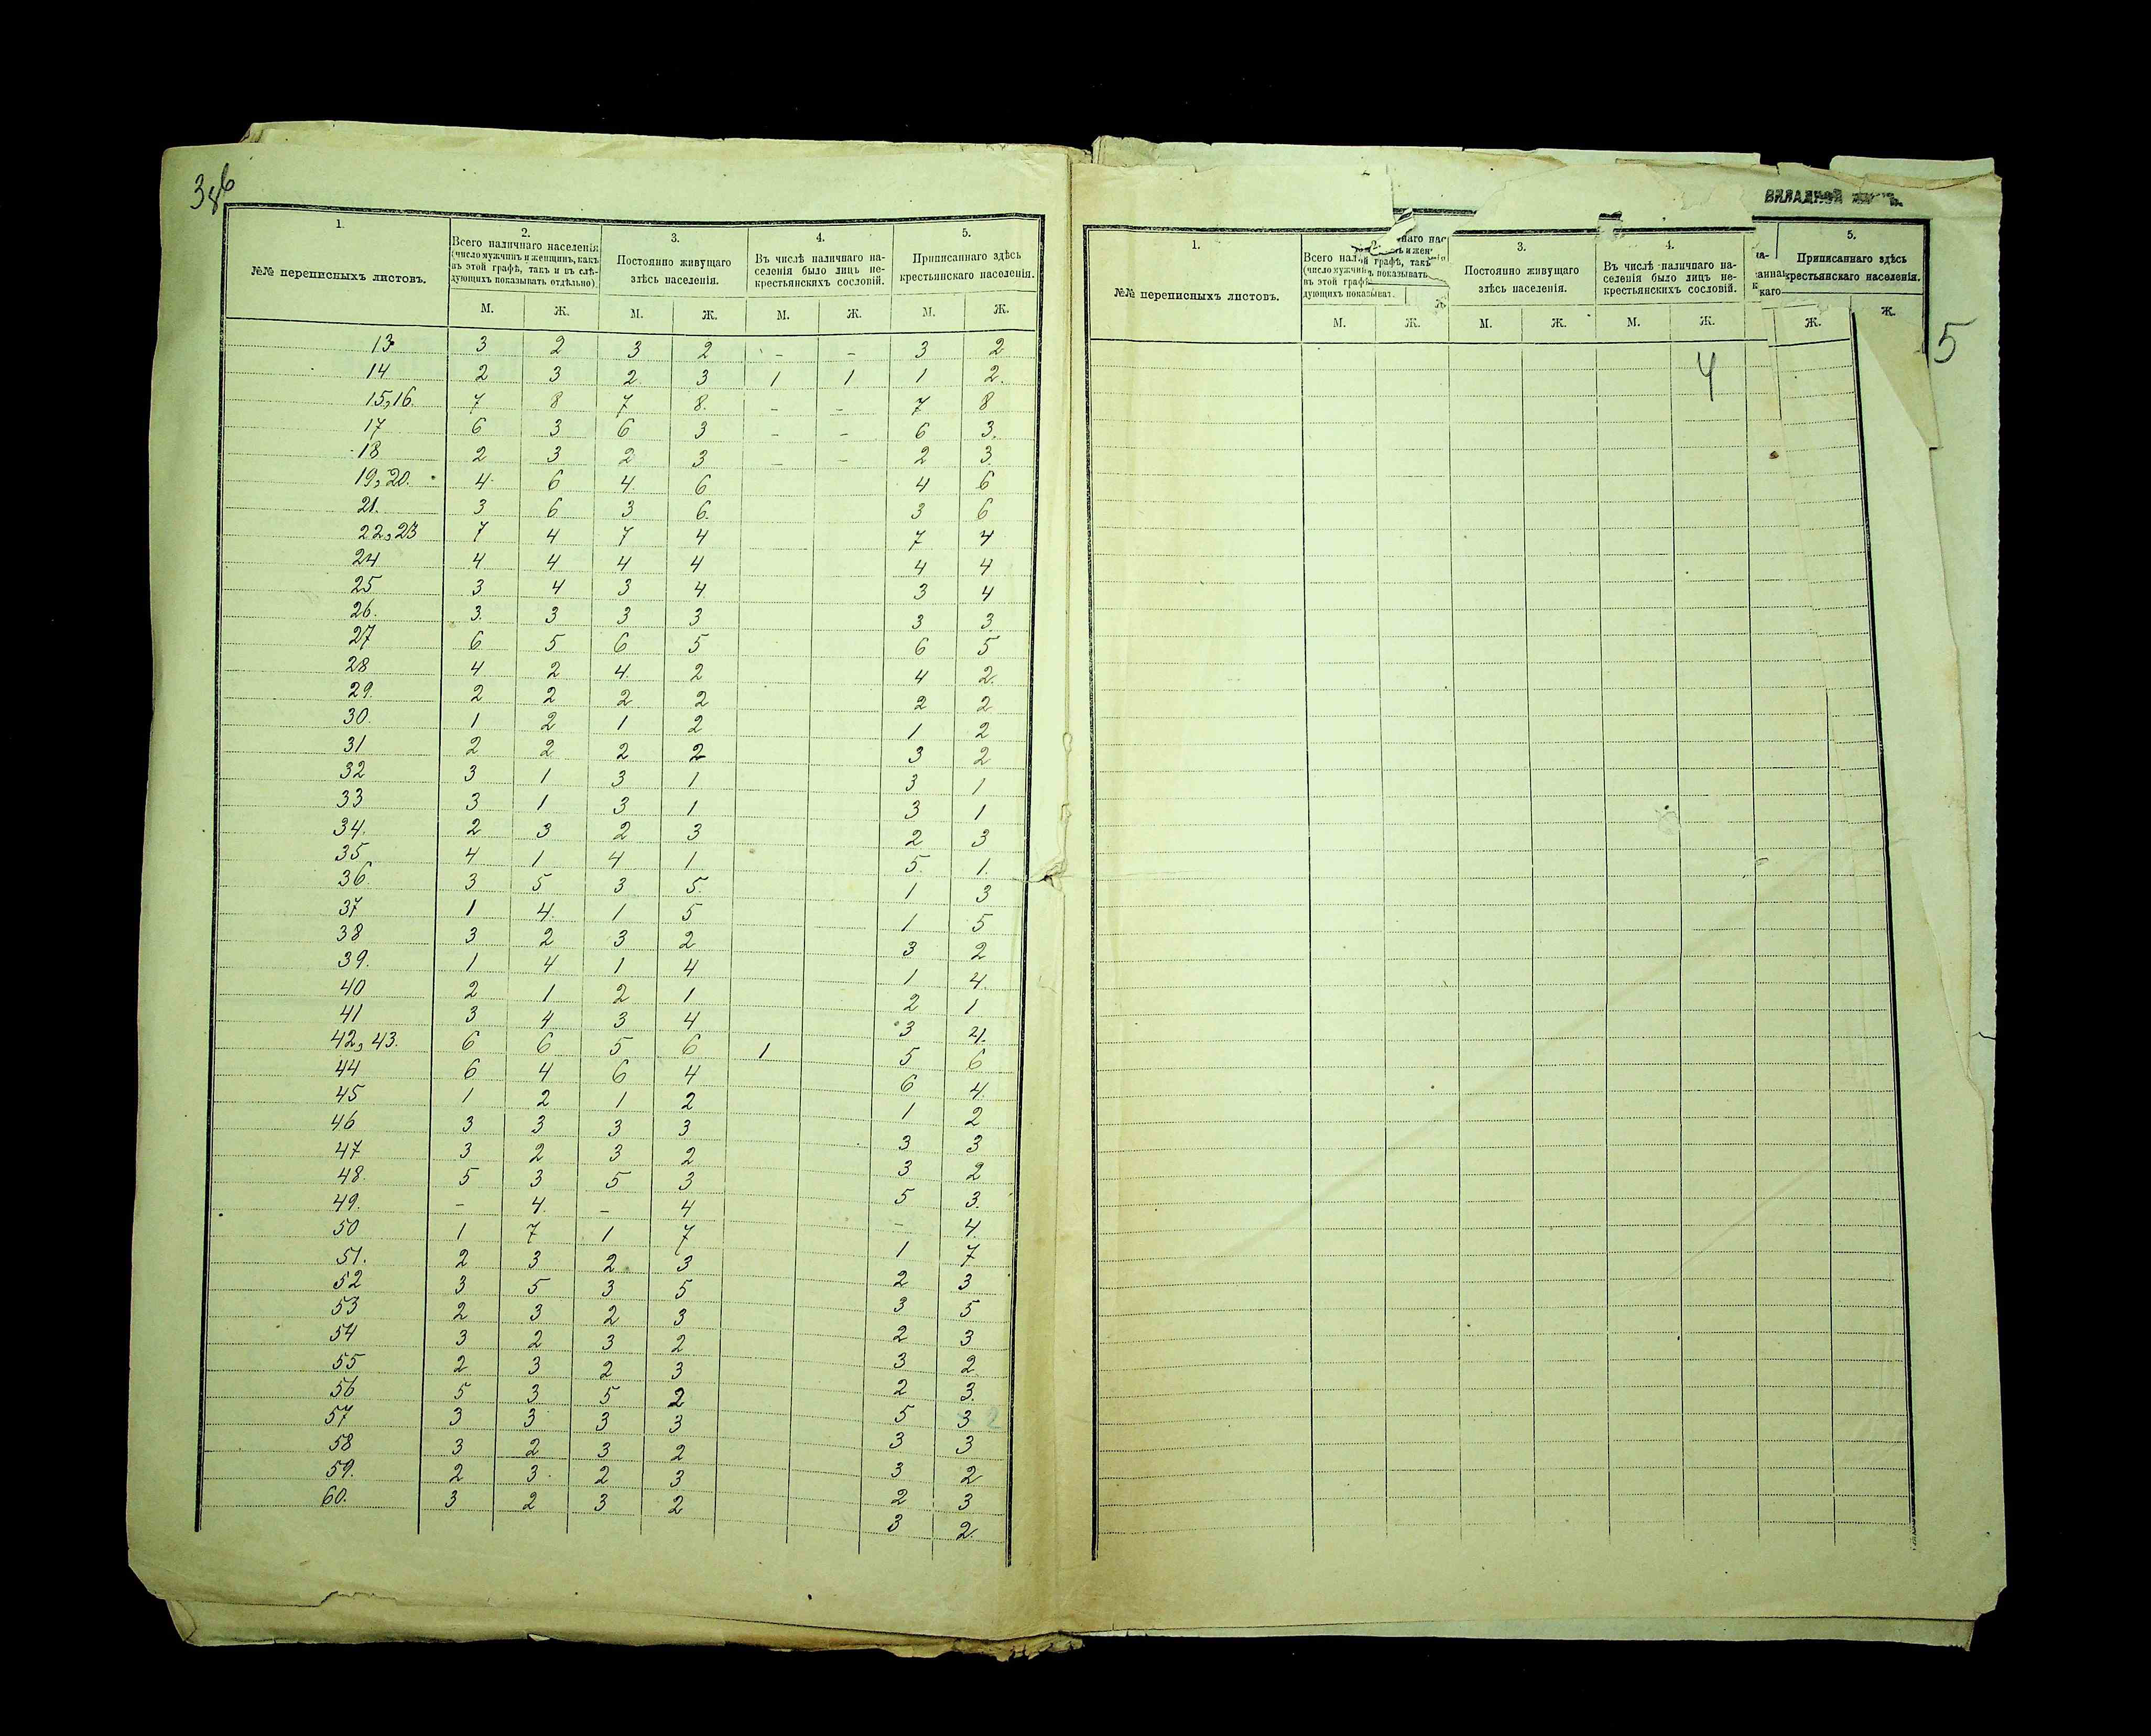 386
1.
2.
Всего наличнаго населенія
(число мужчинъ и женщинъ, какъ
въ этой графѣ, такъ и въ слѣ-
дующихъ показывать отдѣльно)
3.
Постоянно живущаго
здѣсь населенія.
4.
Въ числѣ наличнаго на-
селенія было лицъ не-
крестьянскихъ сословій.
5.
Приписаннаго здѣсь
крестьянскаго населенія.
№№ переписныхъ листовъ.
М. Ж. М. Ж. М. Ж. М. Ж.
13 3 2 3 2 - - 3 2
14 2 3 2 3 1 1 1 2.
15,16. 7 8 7 8. - - 7 8
17 6 3 6 3 - - 6 3.
18 2 3 2 3 - - 2 3.
19,20. 4 6 4. 6 4 6
21. 3 6 3 6. 3 6
22,23 7 4 7 4 7 4
24 4 4 4 4 4 4
25 3 4 3 4 3 4
26. 3. 3 3 3 3 3
27 6 5 6 5 6 5
28 4 2 4. 2 4 2.
29. 2 2 2 2 2 2
30. 1 2 1 2 1 2
31 2 2 2 2 3 2
32 3 1 3 1 3 1
33 3 1 3 1 3 1
34. 2 3 2 3 2 3
35 4 1 4 1 5 1.
36. 3 5 3 5. 1 3
37 1 4. 1 5 1 5
38 3 2 3 2 3 2
39. 1 4 1 4 1 4.
40 2 1 2 1 2 1
41 3 4 3 4 3 4.
42,43. 6 6 5 6 1 5 6
44 6 4 6 4 6 4.
45 1 2 1 2 1 2
46 3 3 3 3 3 3
47 3 2 3 2 3 2
48. 5 3 5 3 5 3.
49. - 4. - 4 - 4.
50 1 7 1 7 1 7
51. 2 3 2 3 2 3
52 3 5 3 5 3 5
53 2 3 2 3 2 3
54 3 2 3 2 3 2
55 2 3 2 3 2 3.
56 5 3 5 2 5 3 2
57 3 3 3 3 3 3
58 3 2 3 2 3 2
59. 2 3 2 3 2 3
60. 3 2 3 2 3 2.
ВКЛАДНОЙ
5
1.
2.
Всего
(число мужчин
въ этой графѣ
дующихъ показыват.
3.
Постоянно живущаго
здѣсь населенія.
4.
Въ числѣ наличнаго на-
селенія было лицъ не-
крестьянскихъ сословій.
5.
Приписаннаго здѣсь
крестьянскаго населенія.
№№ переписныхъ листовъ.
М. Ж. М. Ж. М. Ж. Ж. Ж.
4